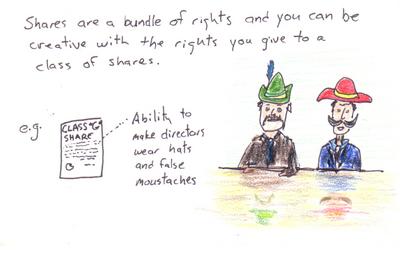 Shares are a bundle of rights and you can be
creative with the rights you give to a
class of shares.
e.g.
CLASS "G"
SHARE
Ability to
make directors
wear hats
and false
moustaches